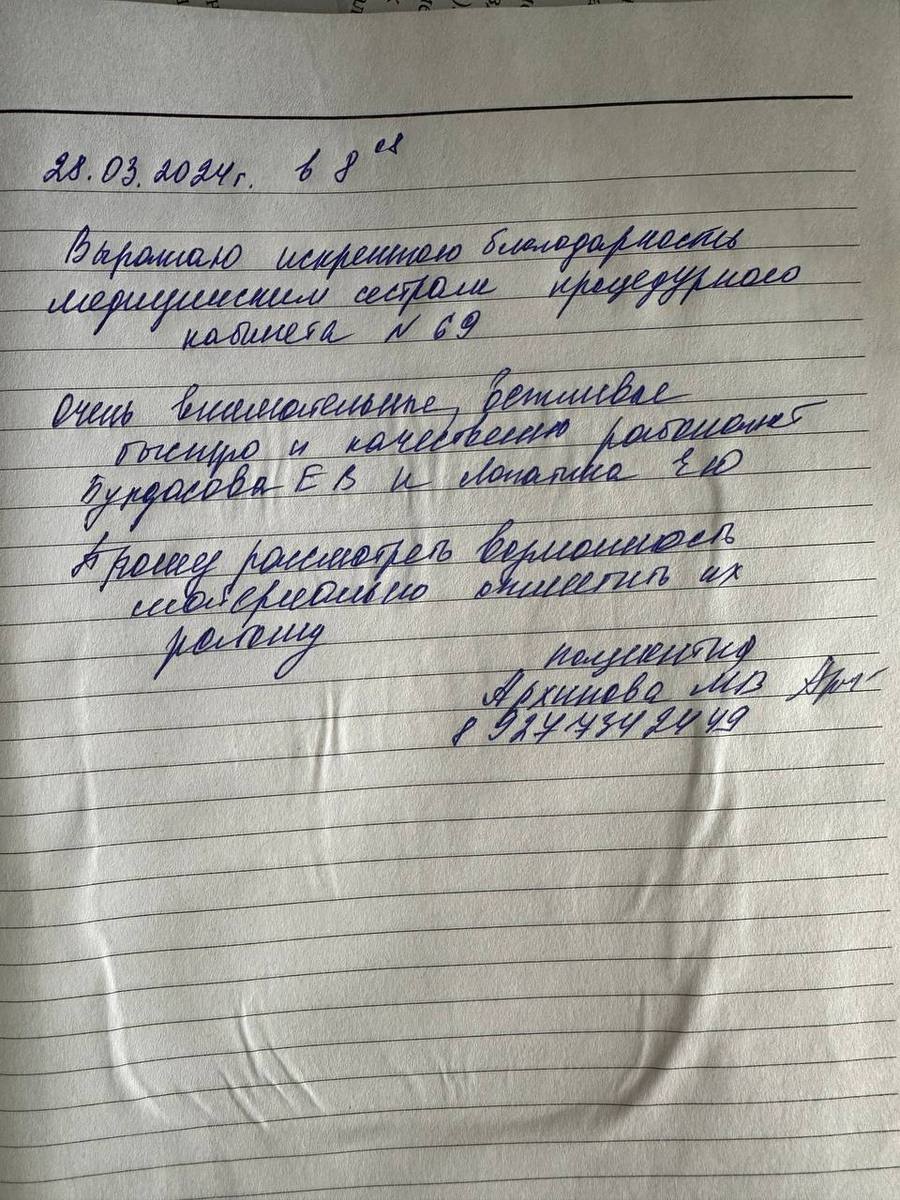 28.03.2024г. в 8
Выражаю искреннюю благодарность
медицинским сестрам процедурного
кабинета N 69
Очень внимательные, вежливые
быстро и качественно работают
Бурдасова Е В и Лопатина Е Ю
Прошу рассмотреть возможность
материально отметить их
работу
пациентка
Архипова МВ
8 9277342449